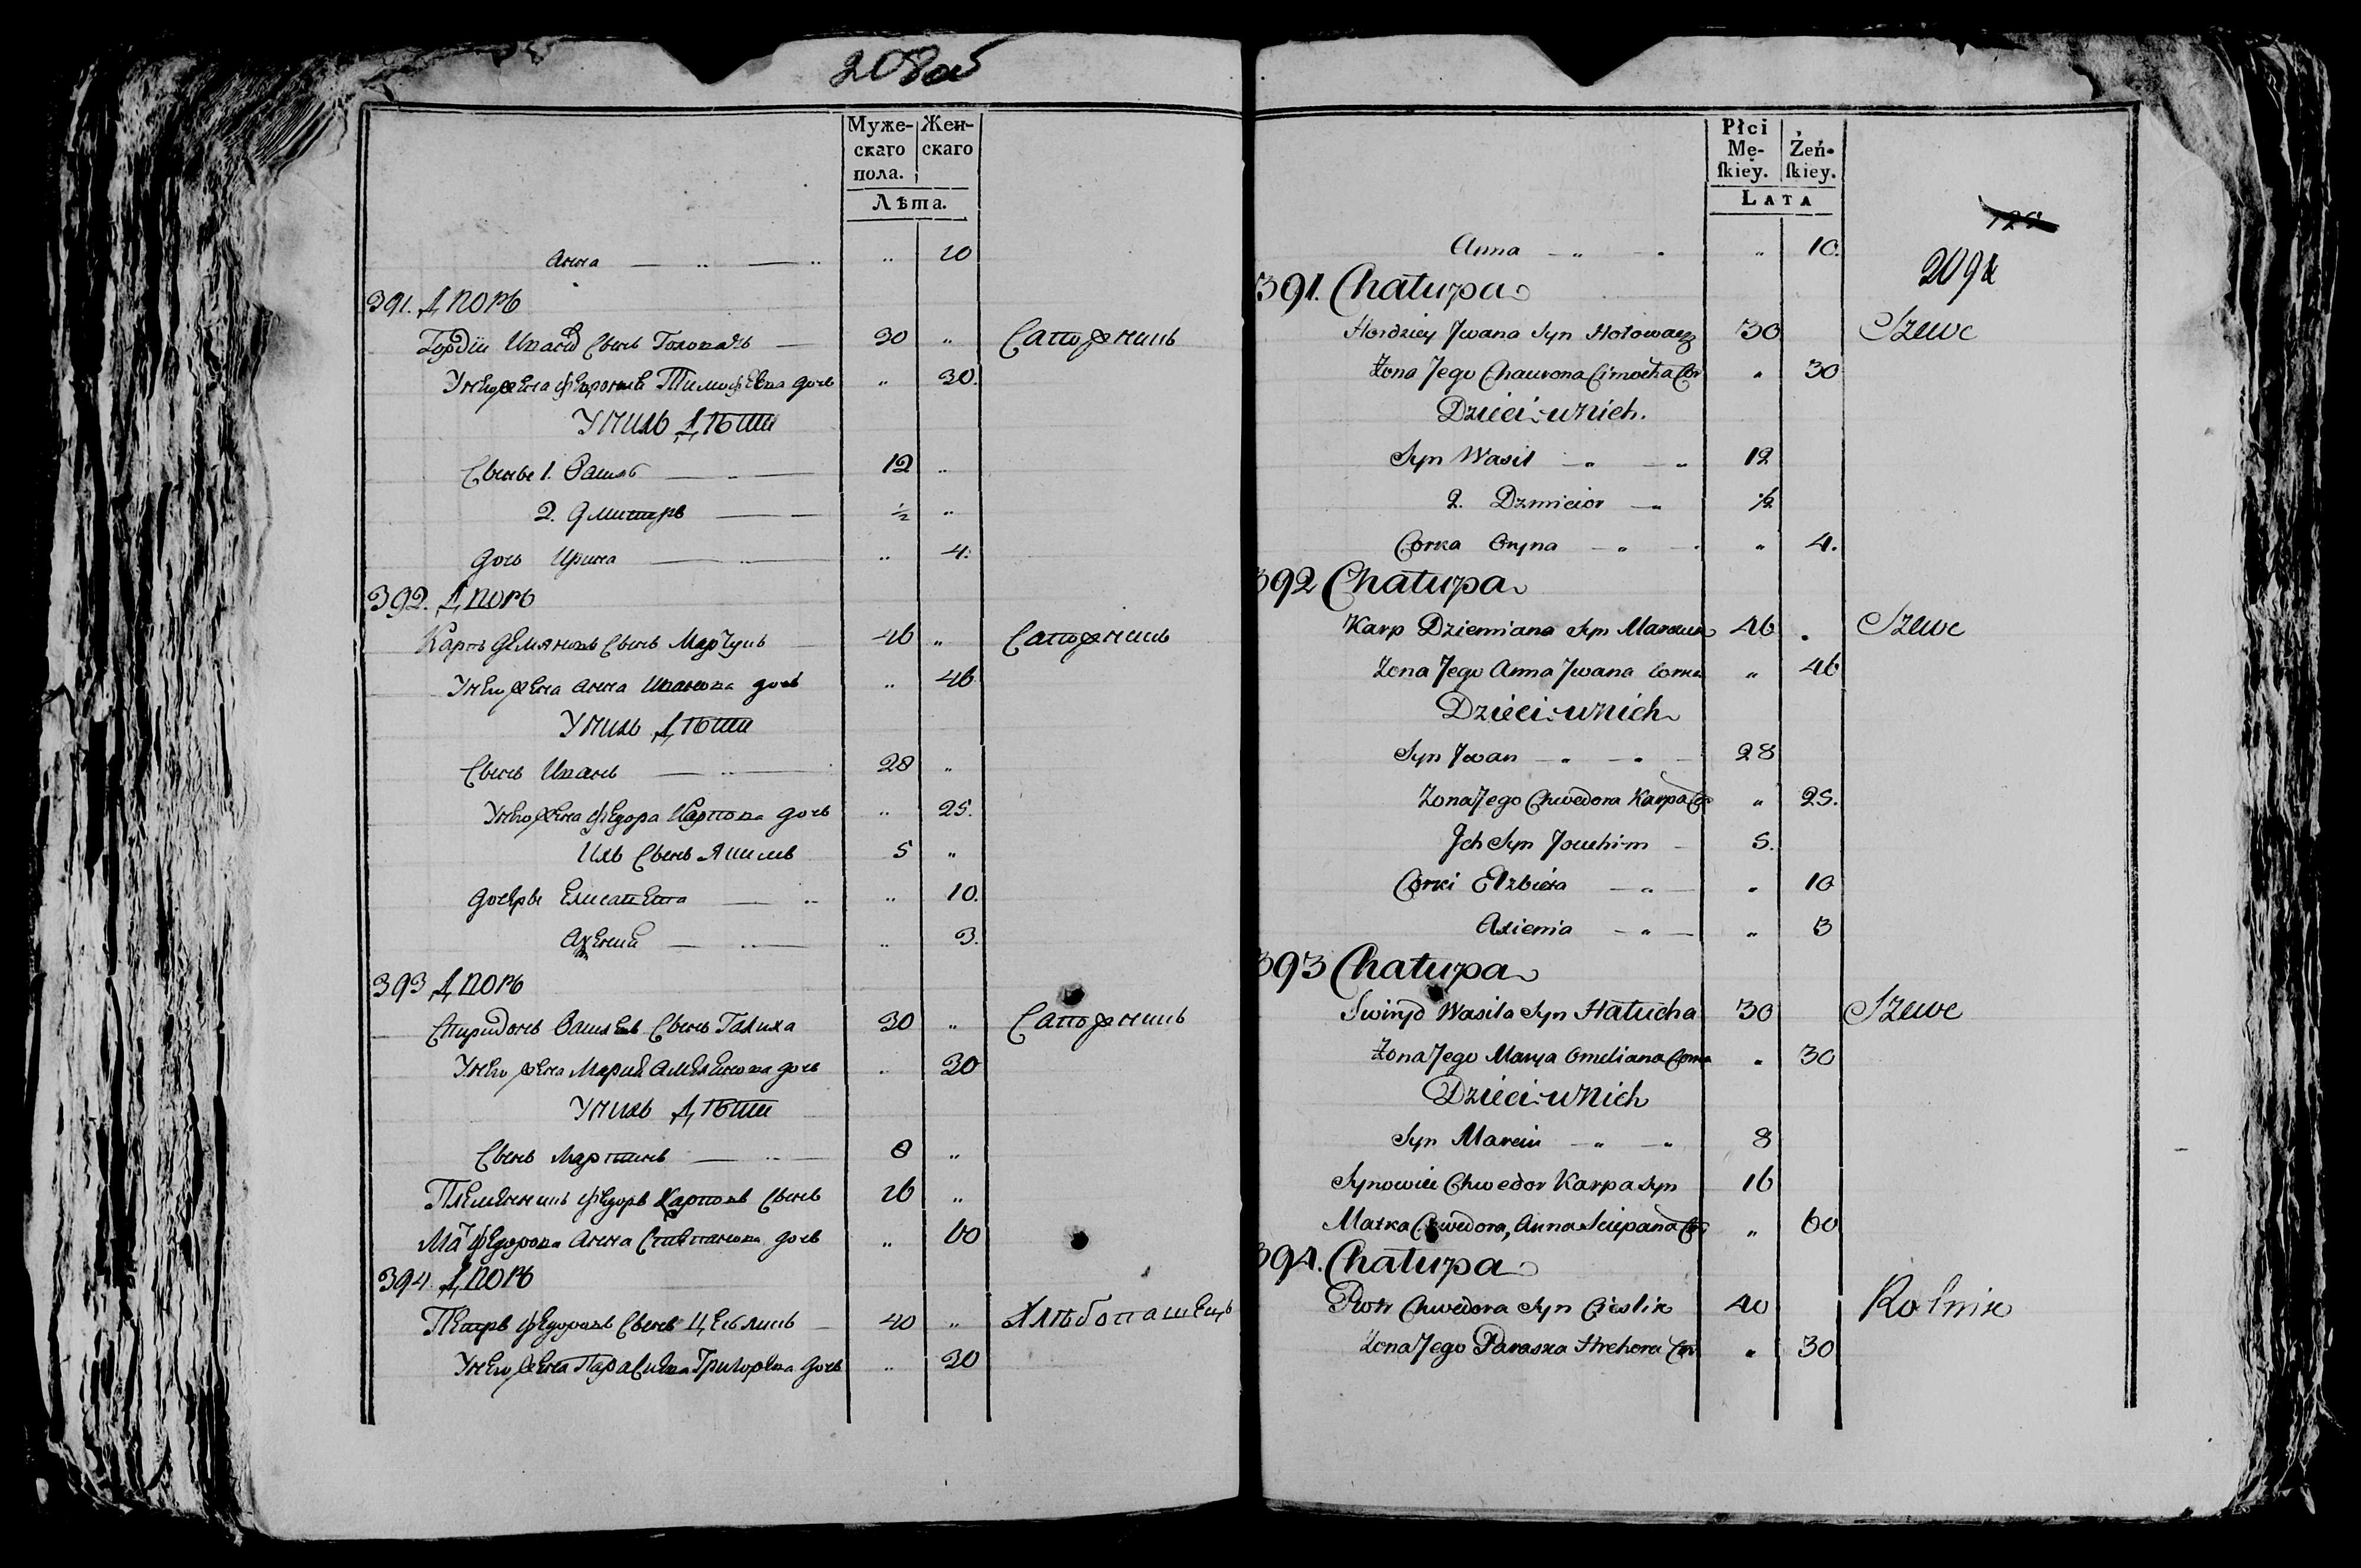 208об
Муже-скаго пола. Жен-скаго
Лѣта.
Анна 10
391. Дворъ
Гордій Ивановъ Сынъ Головачь 30 Сапожникъ
У него жена Феврония Тимофеева дочь 30.
У нихъ Дѣти
Сынъ 1. Василь 12
2. Дмитръ ½
Дочь Ирина 4.
392. Дворъ
Карпъ Демяновъ Сынъ Марчукъ 46 Сапожникъ
У него жена Анна Иванова дочь 46
У нихъ Дѣти
Сынъ Иванъ 28
У него жена Федора Карпова дочь 25.
Ихъ Сынъ Якимъ 5
Дочеры Елисавета 10.
Аксения 3.
393 Дворъ
Спиридонъ Васильевъ Сынъ Галуха 30 Сапожникъ
У него жена Мария Омелянова дочь 30
У нихъ Дѣти
Сынъ Мартинъ 8
Племянникъ Федоръ Карповъ Сынъ 16
Мать Федорова Анна Степанова дочь 60
394. Дворъ
Петръ Федоровъ Сынъ Цесликъ 40 Хлѣбопашецъ
У него жена Парасиева Григорева дочь 30
Płci Mę-ſkiey. Żeń-ſkiey.
LATA
209
Anna 10.
391. Chałupa
Hordziey Jwana Syn Hołowacz 30 Szewc
Żona Jego Chaurona Cimocha Cor 30
Dzieci unich.
Syn Wasil 12
2. Dzmicior ½
Corka Oryna 4.
392 Chałupa
Karp Dziemiana Syn Marczuk 46 Szewc
Żona Jego Anna Jwana Corka 46
Dzieci unich
Syn Jwan 28
Żona Jego Chwedora Karpa Cor 25.
Jch Syn Jouchim 5.
Corki Elzbieta 10
Axienia 3
393 Chałupa
Swiryd Wasila Syn Hałucha 30 Szewc
Żona Jego Marya Omeliana Corka 30
Dzieci unich
Syn Marcin 8
Synowiec Chwedor Karpa Syn 16
Matka Chwedora, Anna Sciepana Cor 60
394. Chałupa
Piotr Chwedora Syn Cieslik 40 Rolnik
Żona Jego Paraska Hrehora Cor 30